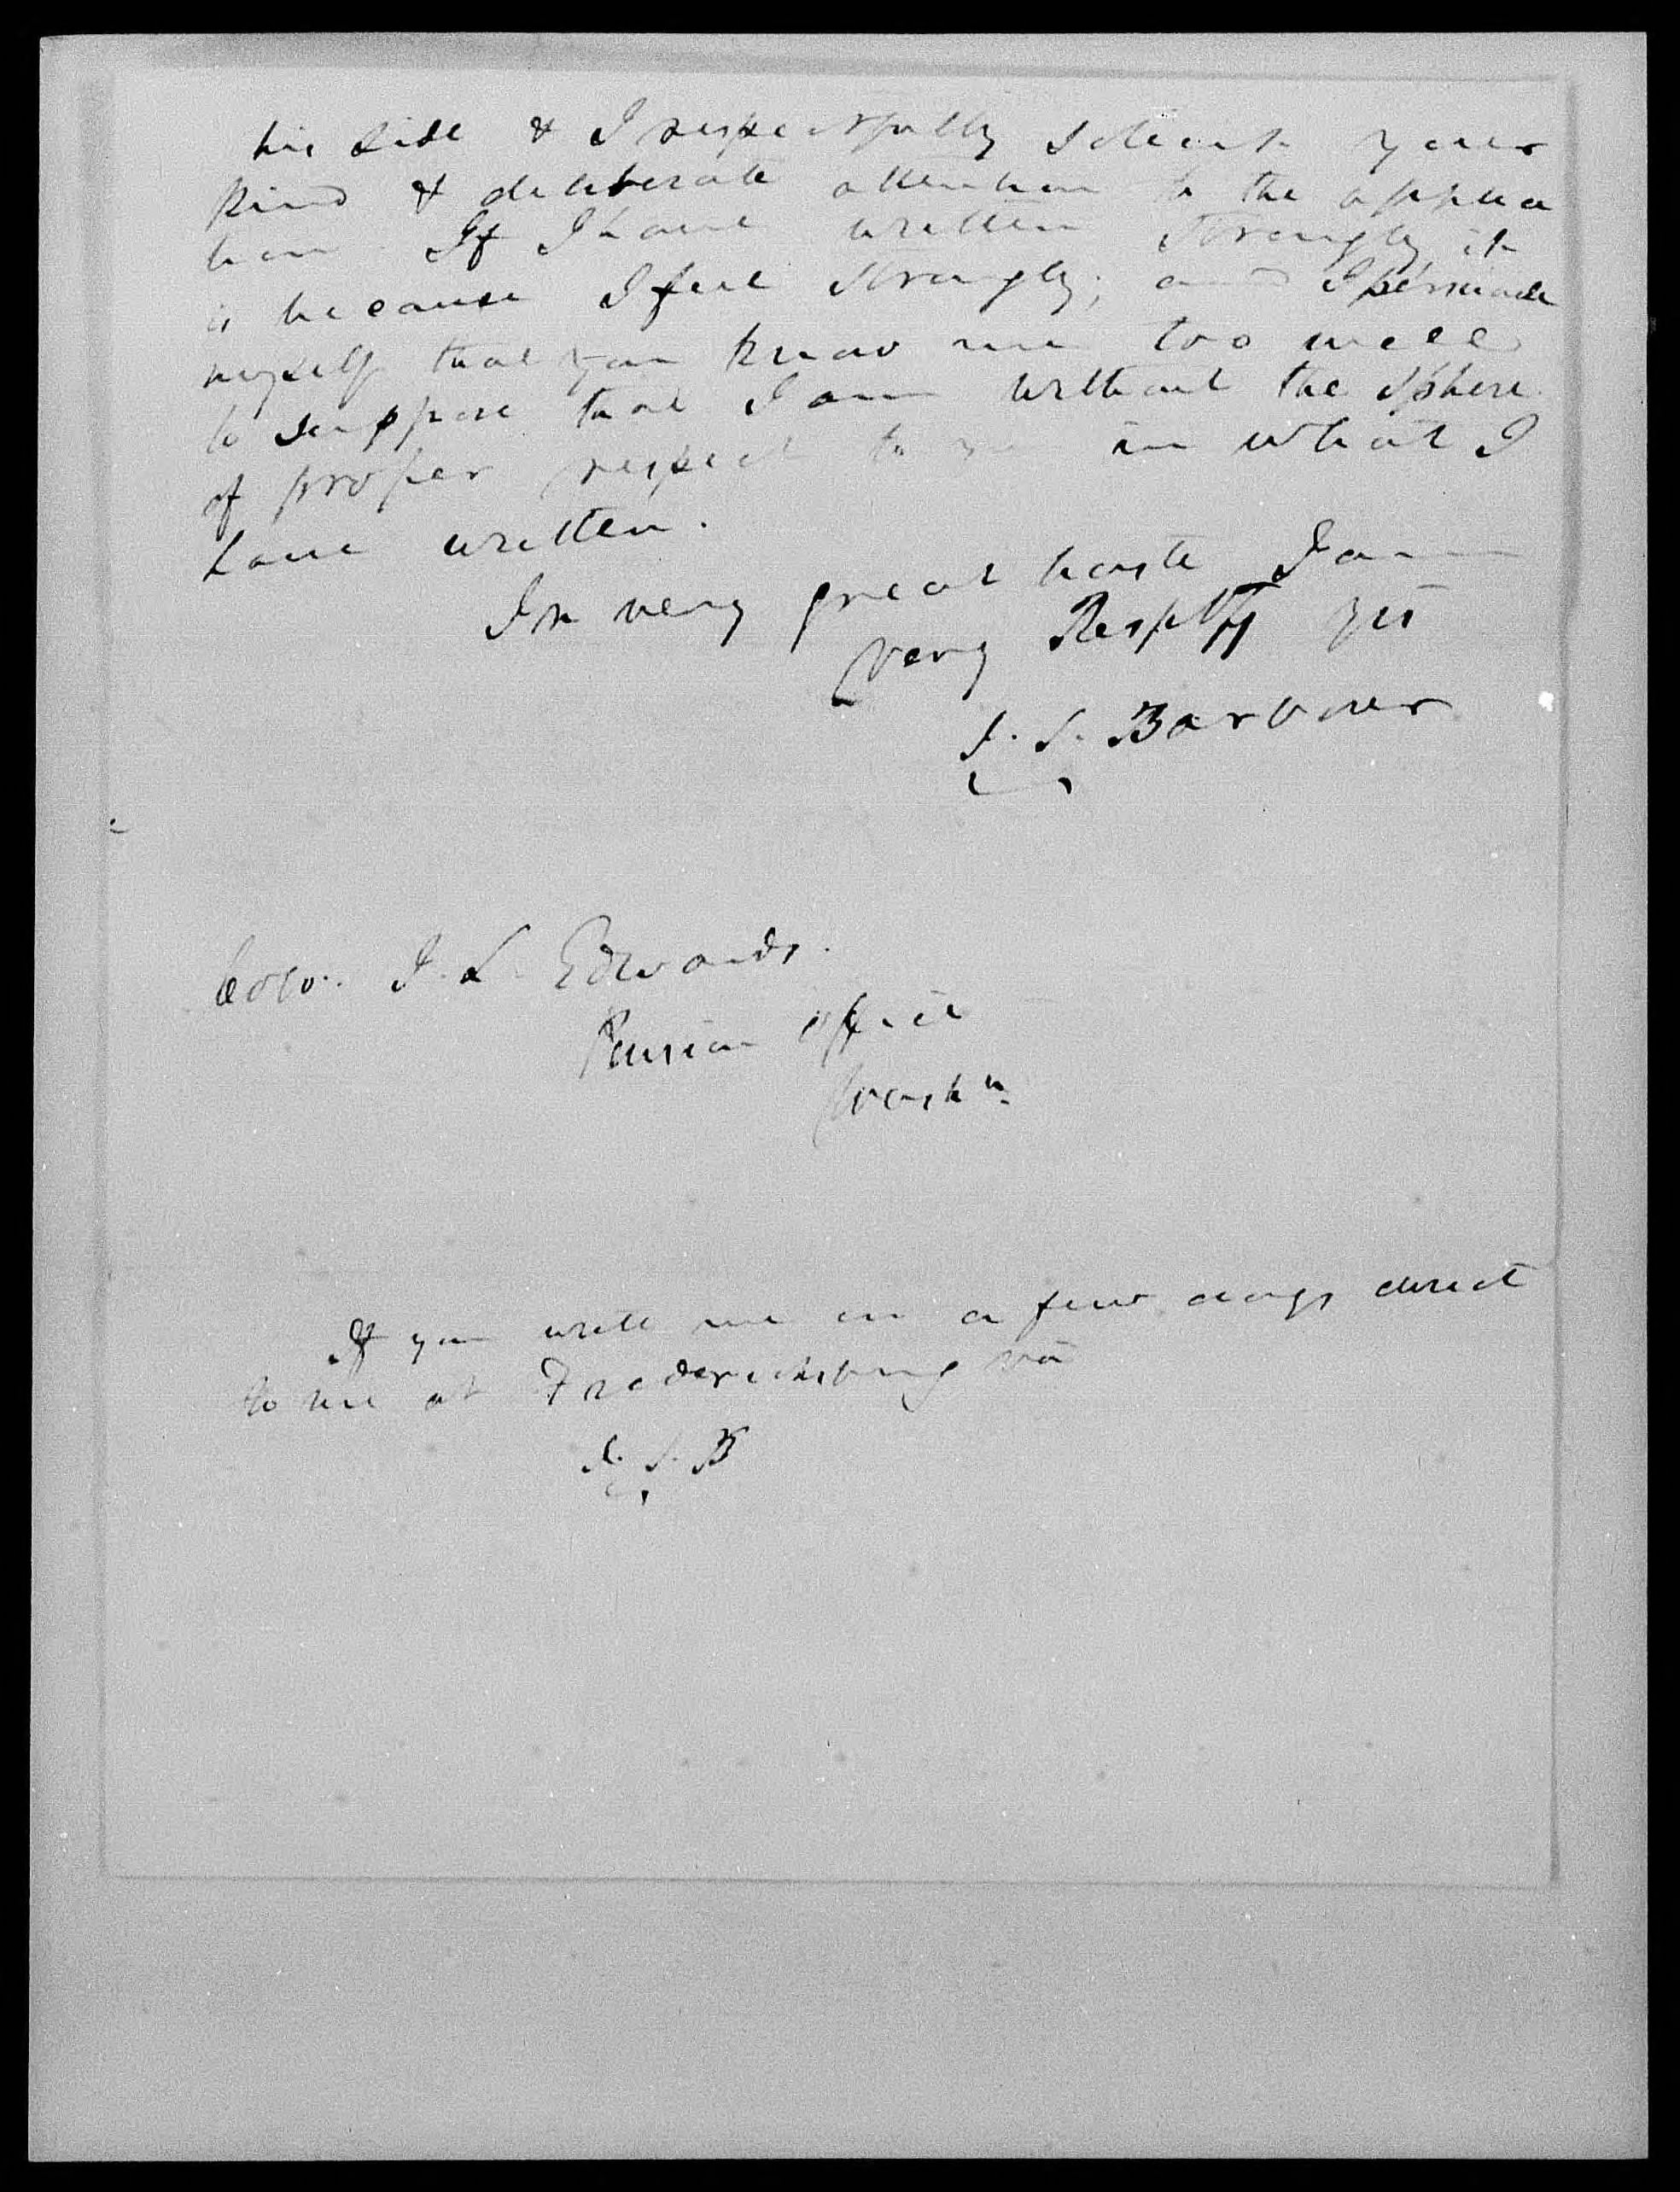 his side & I respectfully solicit your
kind & deliberate attention to the applica
tion. If I have written strongly it
is because I feel strongly; and I persuade
myself that you know me too well
to suppose that I am without the sphere
of proper respect to you in what I
have written.
In very great haste I am
very Respfly yrs
J. S. Barbour
Colo. J. L. Edwards.
Pension office
Washn.
If you write me in a few days direct
to me at Fredericksburg va
J. S. B